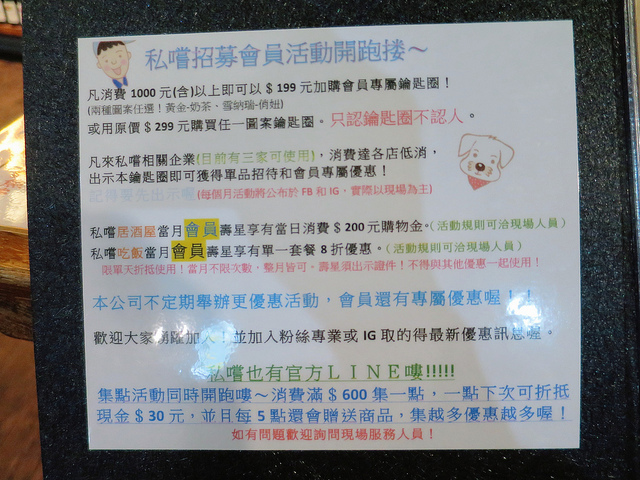 私嚐招募會員活動開跑摟～
凡消費 1000 元(含)以上即可以＄199 元加購會員專屬鑰匙圈！
(兩種圖案任選！黃金-奶茶、雪納瑞-俏妞)
或用原價＄299 元購買任一圖案鑰匙圈。只認鑰匙圈不認人。
凡來私嚐相關企業(目前有三家可使用)，消費達各店低消，
出示本鑰匙圈即可獲得單品招待和會員專屬優惠！
記得要先出示喔(每個月活動將公布於 FB 和 IG，實際以現場為主)
私嚐居酒屋當月會員壽星享有當日消費＄200 元購物金。(活動規則可洽現場人員)
私嚐吃飯當月會員壽星享有單一套餐 8 折優惠。(活動規則可洽現場人員)
限單天折抵使用！當月不限次數，整月皆可。壽星須出示證件！不得與其他優惠一起使用！
本公司不定期舉辦更優惠活動，會員還有專屬優惠喔！！
歡迎大家踴躍加入！並加入粉絲專業或 IG 取的得最新優惠訊息喔。
私嚐也有官方ＬＩＮＥ嘍!!!!!
集點活動同時開跑嘍～消費滿＄600 集一點，一點下次可折抵
現金＄30 元，並月每 5 點還會贈送商品，集越多優惠越多喔！
如有問題歡迎詢問現場服務人員！